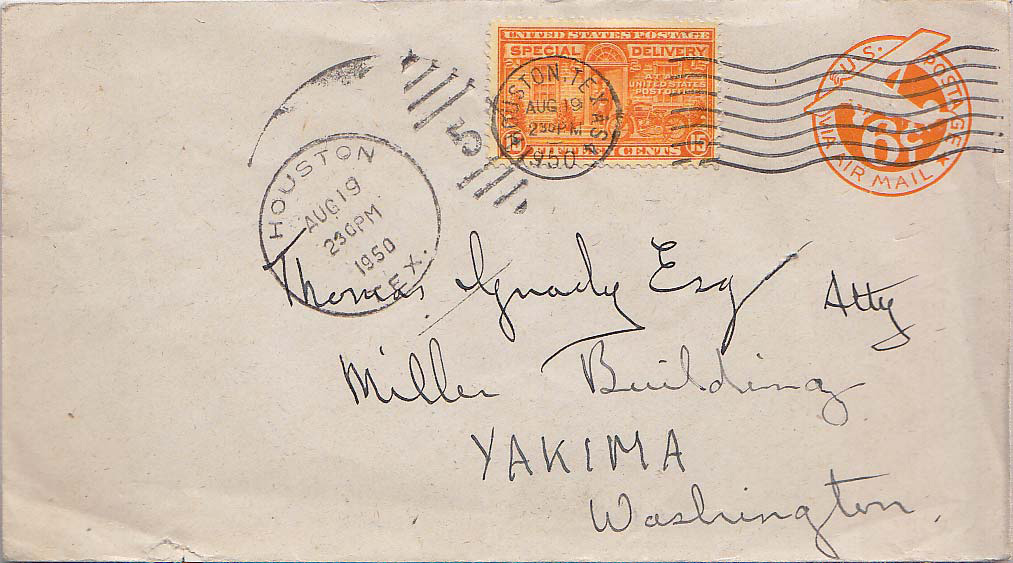 UNITED STATES POSTAGE
SPECIAL DELIVERY
AT ANY
UNITED STATES
POST OFFICE
15 CENTS 15
HOUSTON, TEXAS
AUG 19
2 30 PM
1950
U.S. POSTAGE
6¢
VIA AIR MAIL
5
HOUSTON
AUG 19
230PM
1950
TEX.
Thomas Esq Atty
Miller Building
YAKIMA
Washington.